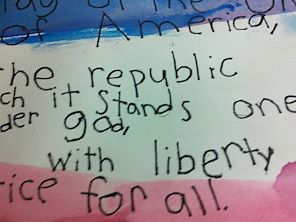 of the
of America,
he republic
ch it stands one
der god,
with liberty
ice for all.